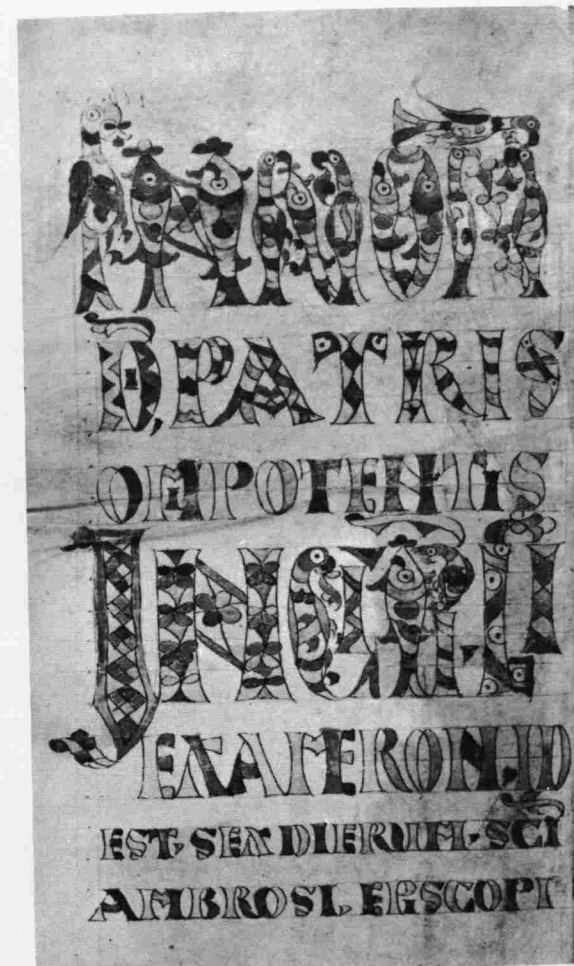 IN NOM
DĪ, PATRIS
OMIPOTENTIS
INCP̄, LĪ
EXAMERON, ID
EST, SEX DIERUM, SC̄I
AMBROSI, EPISCOPI